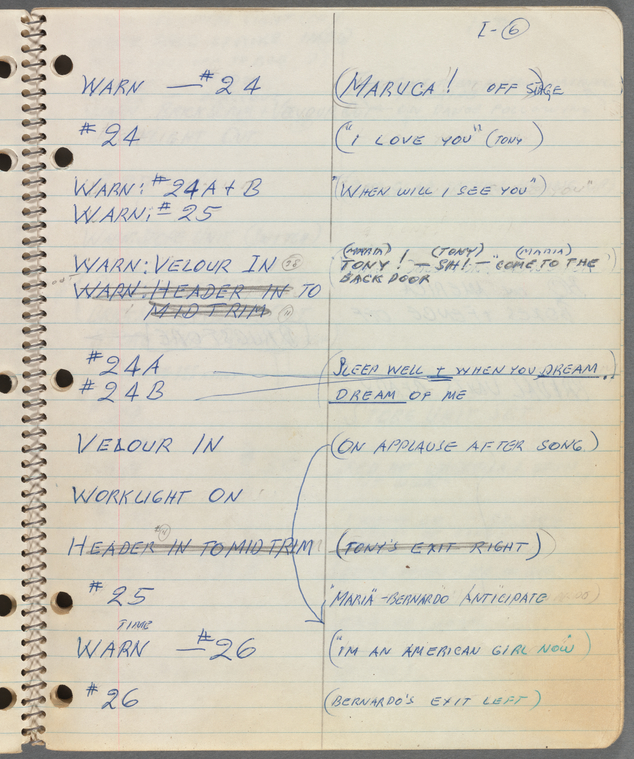 I-6
WARN — #24 (MARUCA! OFF STAGE
#24 ("I LOVE YOU" (TONY)
WARN: #24A + B "WHEN WILL I SEE YOU")
WARN: #25
(MARIA) (TONY) (MARIA)
WARN: VELOUR IN TONY! — SH! — "COME TO THE
BACK DOOR
WARN: HEADER IN TO
MID TRIM
#24A (SLEEP WELL + WHEN YOU DREAM..
#24B DREAM OF ME
VELOUR IN (ON APPLAUSE AFTER SONG)
WORKLIGHT ON
HEADER IN TO MID TRIM (TONY'S EXIT RIGHT)
#25 "MARIA" - BERNARDO ANTICIPATE
TIME
WARN — #26 ("I'M AN AMERICAN GIRL NOW")
#26 (BERNARDO'S EXIT LEFT)